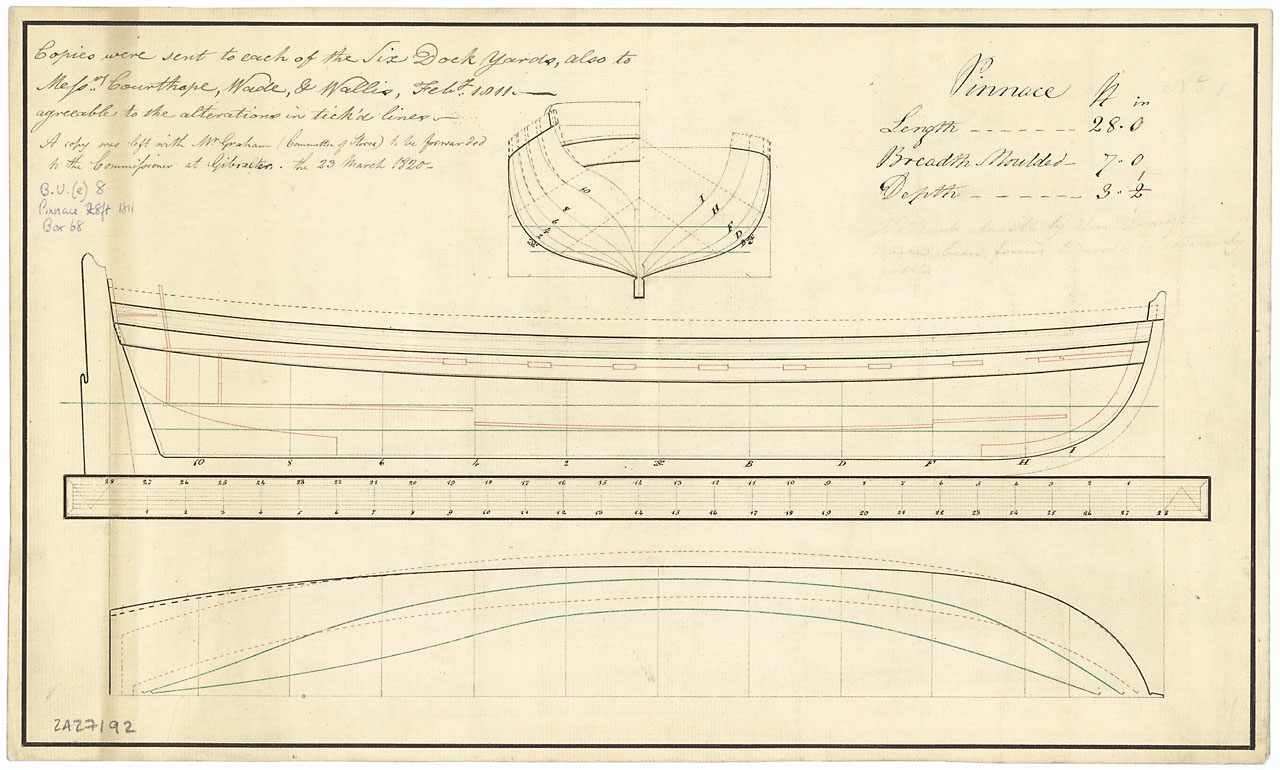 Copies were sent to each of the Six Dock Yards, also to
Mess.rs Courthope, Wade, & Wallis, Feb.y 1811.
agreeable to the alterations in tick'd lines
A copy was left with Mr Graham (Committee of Stores) to be forwarded
to the Commissioner at Gibralter. the 23 March 1820
B.U.(e) 8
Pinnace 28ft 1811
Box 68
Pinnace ft in
Length 28.0
Breadth Moulded 7.0
Depth 3.½
10 8 6 4 2 I H F D
10 8 6 4 2 B D F H I
28 27 26 25 24 23 22 21 20 19 18 17 16 15 14 13 12 11 10 9 8 7 6 5 4 3 2 1
1 2 3 4 5 6 7 8 9 10 11 12 13 14 15 16 17 18 19 20 21 22 23 24 25 26 27 28
ZAZ7192